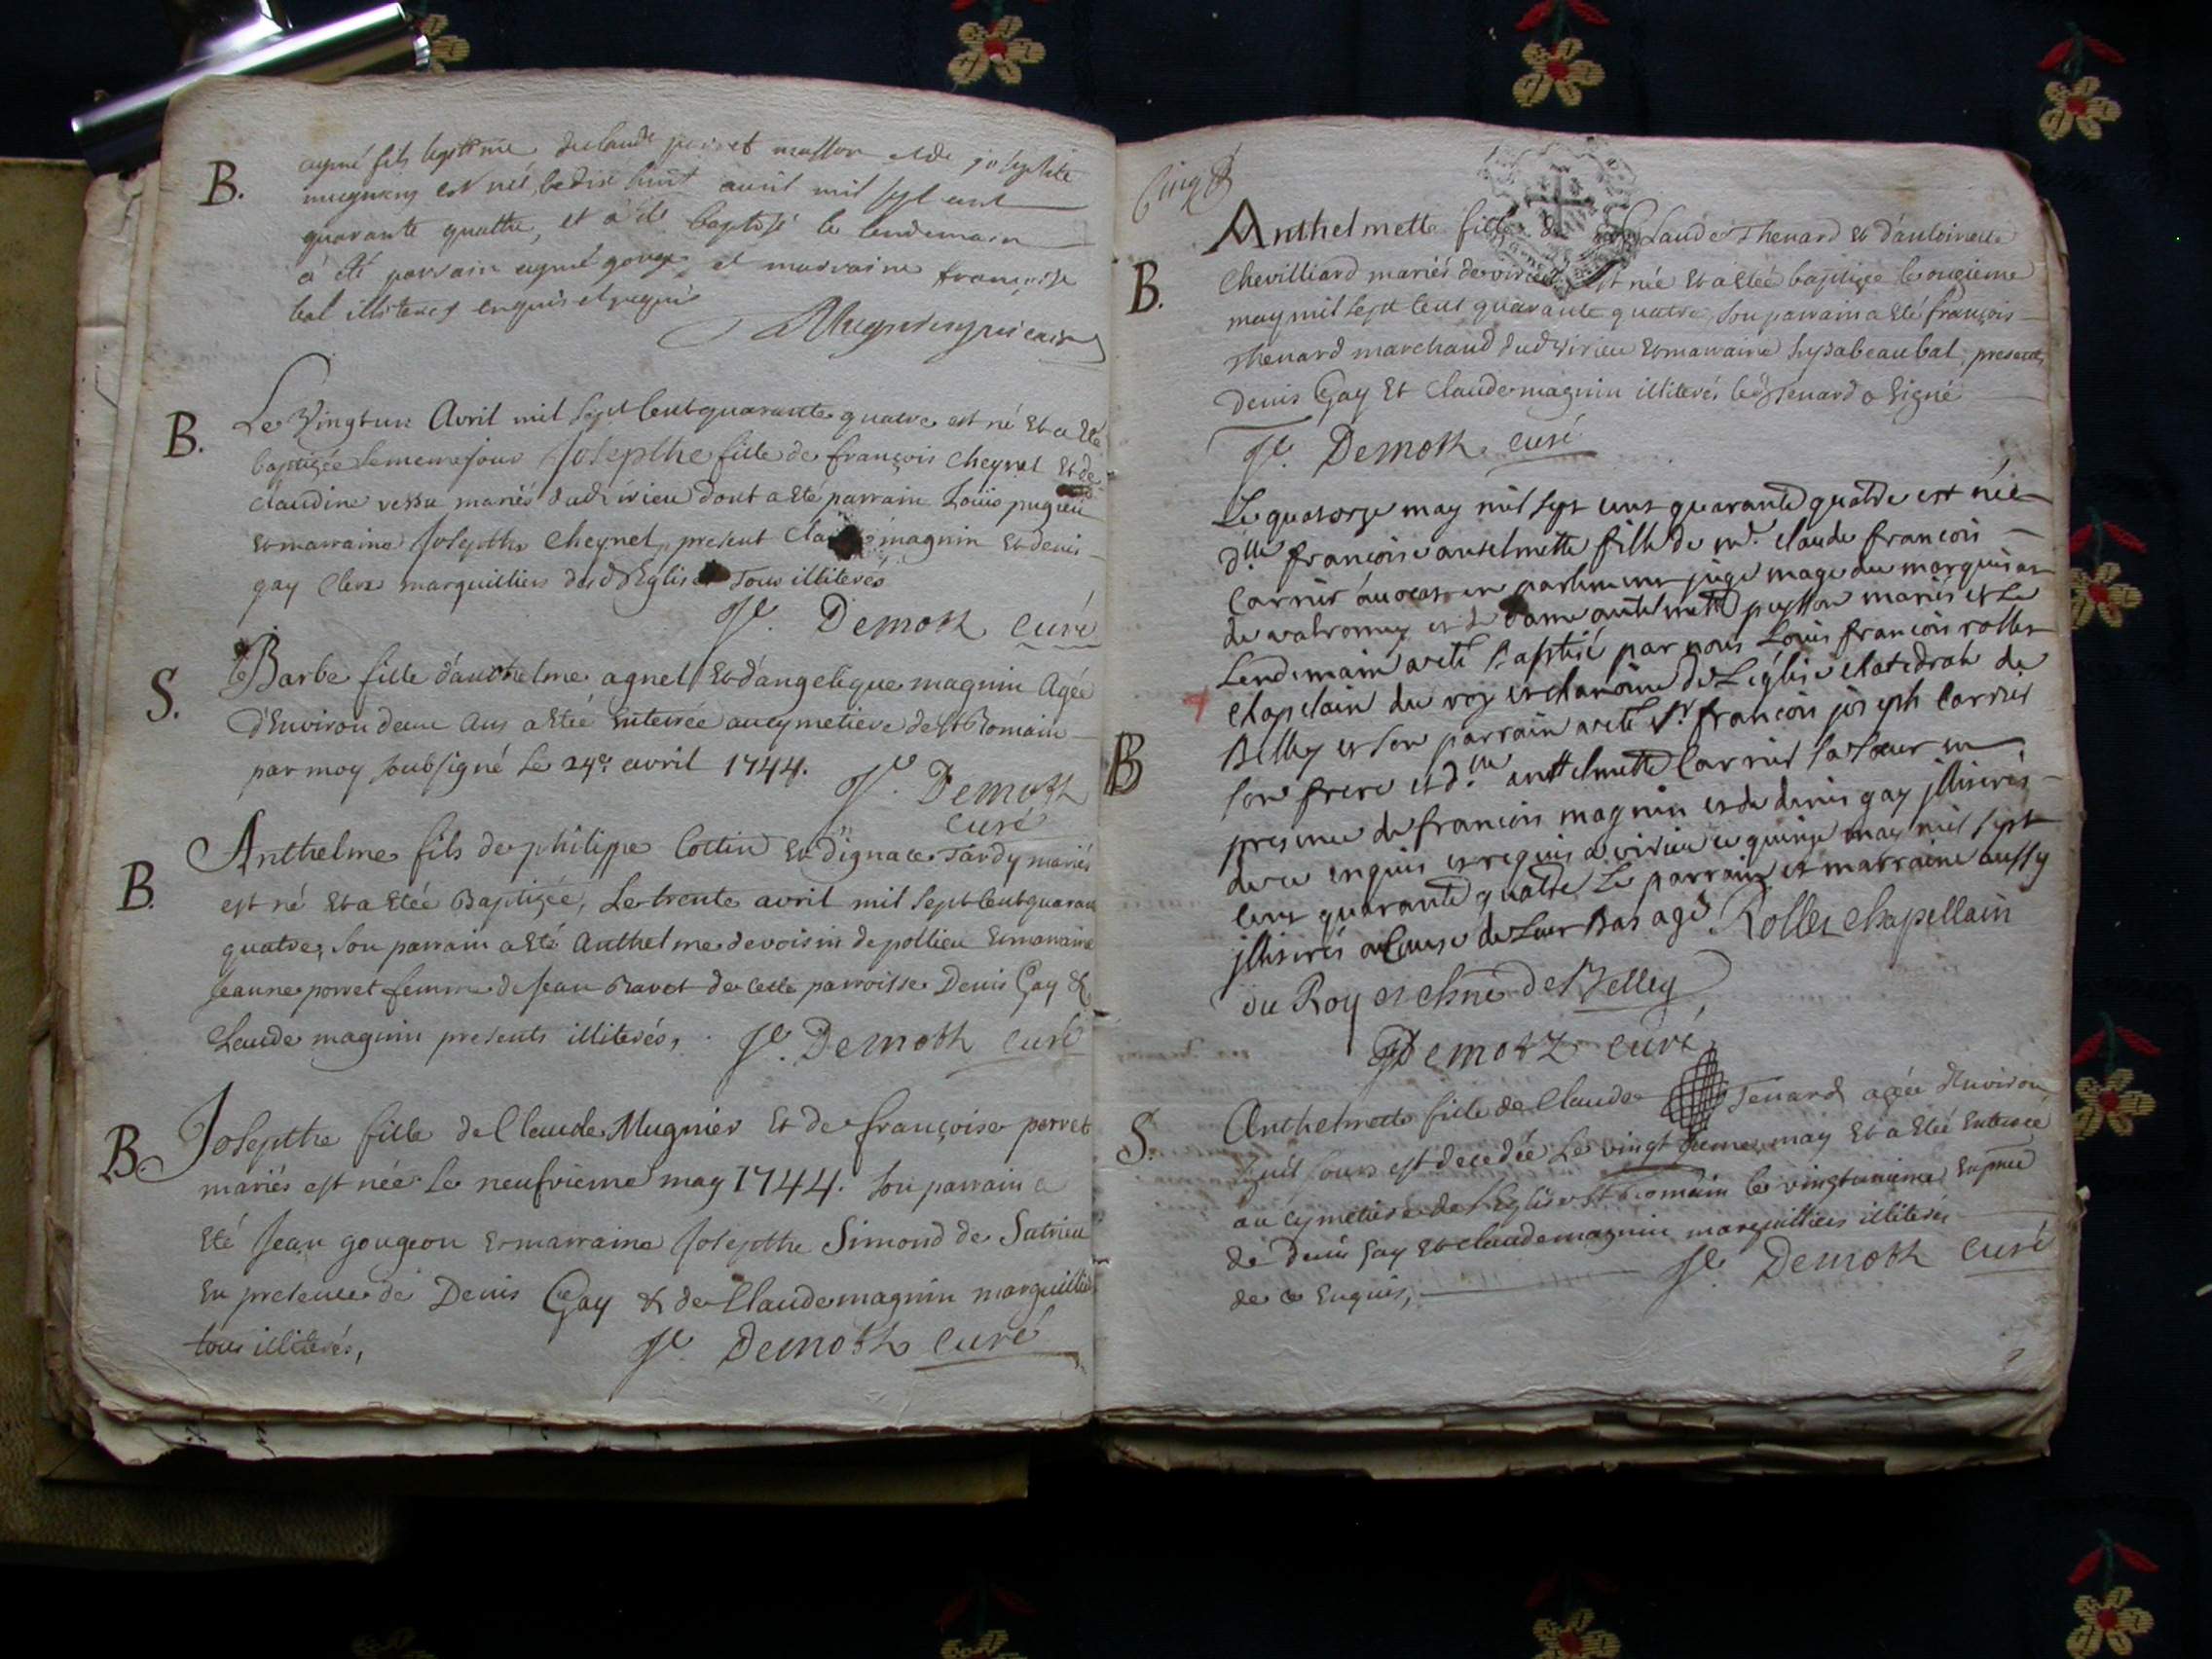 B.
aymé fils legitime de claude perret masson et de josephte
mugniery est né le dix huit avril mil sept cent
quarante quattre, et a été baptisé le lendemain
a été parrain aymé gouge et marraine françoise
bal illiterez enquis et requis
Mugnier vicaire
B.
Le Vingt un Avril mil sept Cent quarante quatre est né Et a Eté
baptizée le meme jour Josepthe fille de françois Cheynel Et de
Claudine vessu mariés dud virieu dont a Eté parrain Loüis pugieu
Et marraine Josepthe Cheynel, present Claude magnin Et denis
gay Clerc marguilliers de lad Eglise Tous illiterés
Demotz curé
S.
Barbe fille d'anthelme agnel Et d'angelique magnin Agée
d'Environ deux Ans a Eteé Enterrée au cymetiere de St Romain
par moy soubsigné Le 24e. avril 1744.
Demotz
curé
B.
Anthelme fils de philippe Cottin Et d'ignace Tardy mariés
est né Et a Eteé Baptizée, Le trente avril mil Sept Cent quaran
quatre, Son parrain a Eté Anthelme devoisin de pollieu Et marraine
Jeanne perret femme de Jean Ravet de Cette parroisse Denis Gay &
Claude magnin presents illiterés,
Demotz curé
B.
Josepthe fille de Claude Mugnier Et de françoise perret
mariés est née Le neufvieme may 1744. Son parrain a
Eté Jean gougeon Et marraine Josepthe Simond de Sutrieu
En presence de Denis Gay & de Claude magnin marguilliers
tous illiterés,
Demotz curé
Cinq
Anthelmette fille de Claude Thenard Et d'antoinette
B.
Chevilliard mariés de virieu Est née Et a Eteé baptizée le onzieme
may mil Sept Cent quarante quatre, Son parrain a Eté françois
Thenard marchand dud Virieu Et marraine Isabeau bal, presents
Denis Gay Et Claude magnin illiterés led Tenard a Signé
Demotz curé
Le quatorze may mil sept cent quarante quatre est née
dlle françoise anselmette fille de mr. claude françois
Carrier avocat en parlement juge mage du marquisat
de valromey et de dame antelmette peysson mariés et le
Lendemain a eté baptisé par nous Louis françois rollet
chapelain du roy et chanoine de L'église chatedrale de
B
Belley et son parrain a eté sr françois joseph Carrier
son frere et dlle anthelmette Carrier sa soeur en
presence de françois magnin et de denis gay jlliterés
de ce enquis et requis a virieu ce quinze may mil sept
cent quarante quatre Le parrain et marraine aussy
jlliterés a Cause de Leur bas age Rollet chapellain
du Roy et chne de Belley
Demotz curé
S.
Anthelmette fille de Claude Tenard agée d'Environ
huit jours est decedée Le vingt may Et a Eteé Enterrée
au Cymetiere de l'Eglise St Romain le vingtunieme Enpnce
de Denis Gay Et Claude magnin marguilliers illiterés
de ce Enquis,
Demotz curé